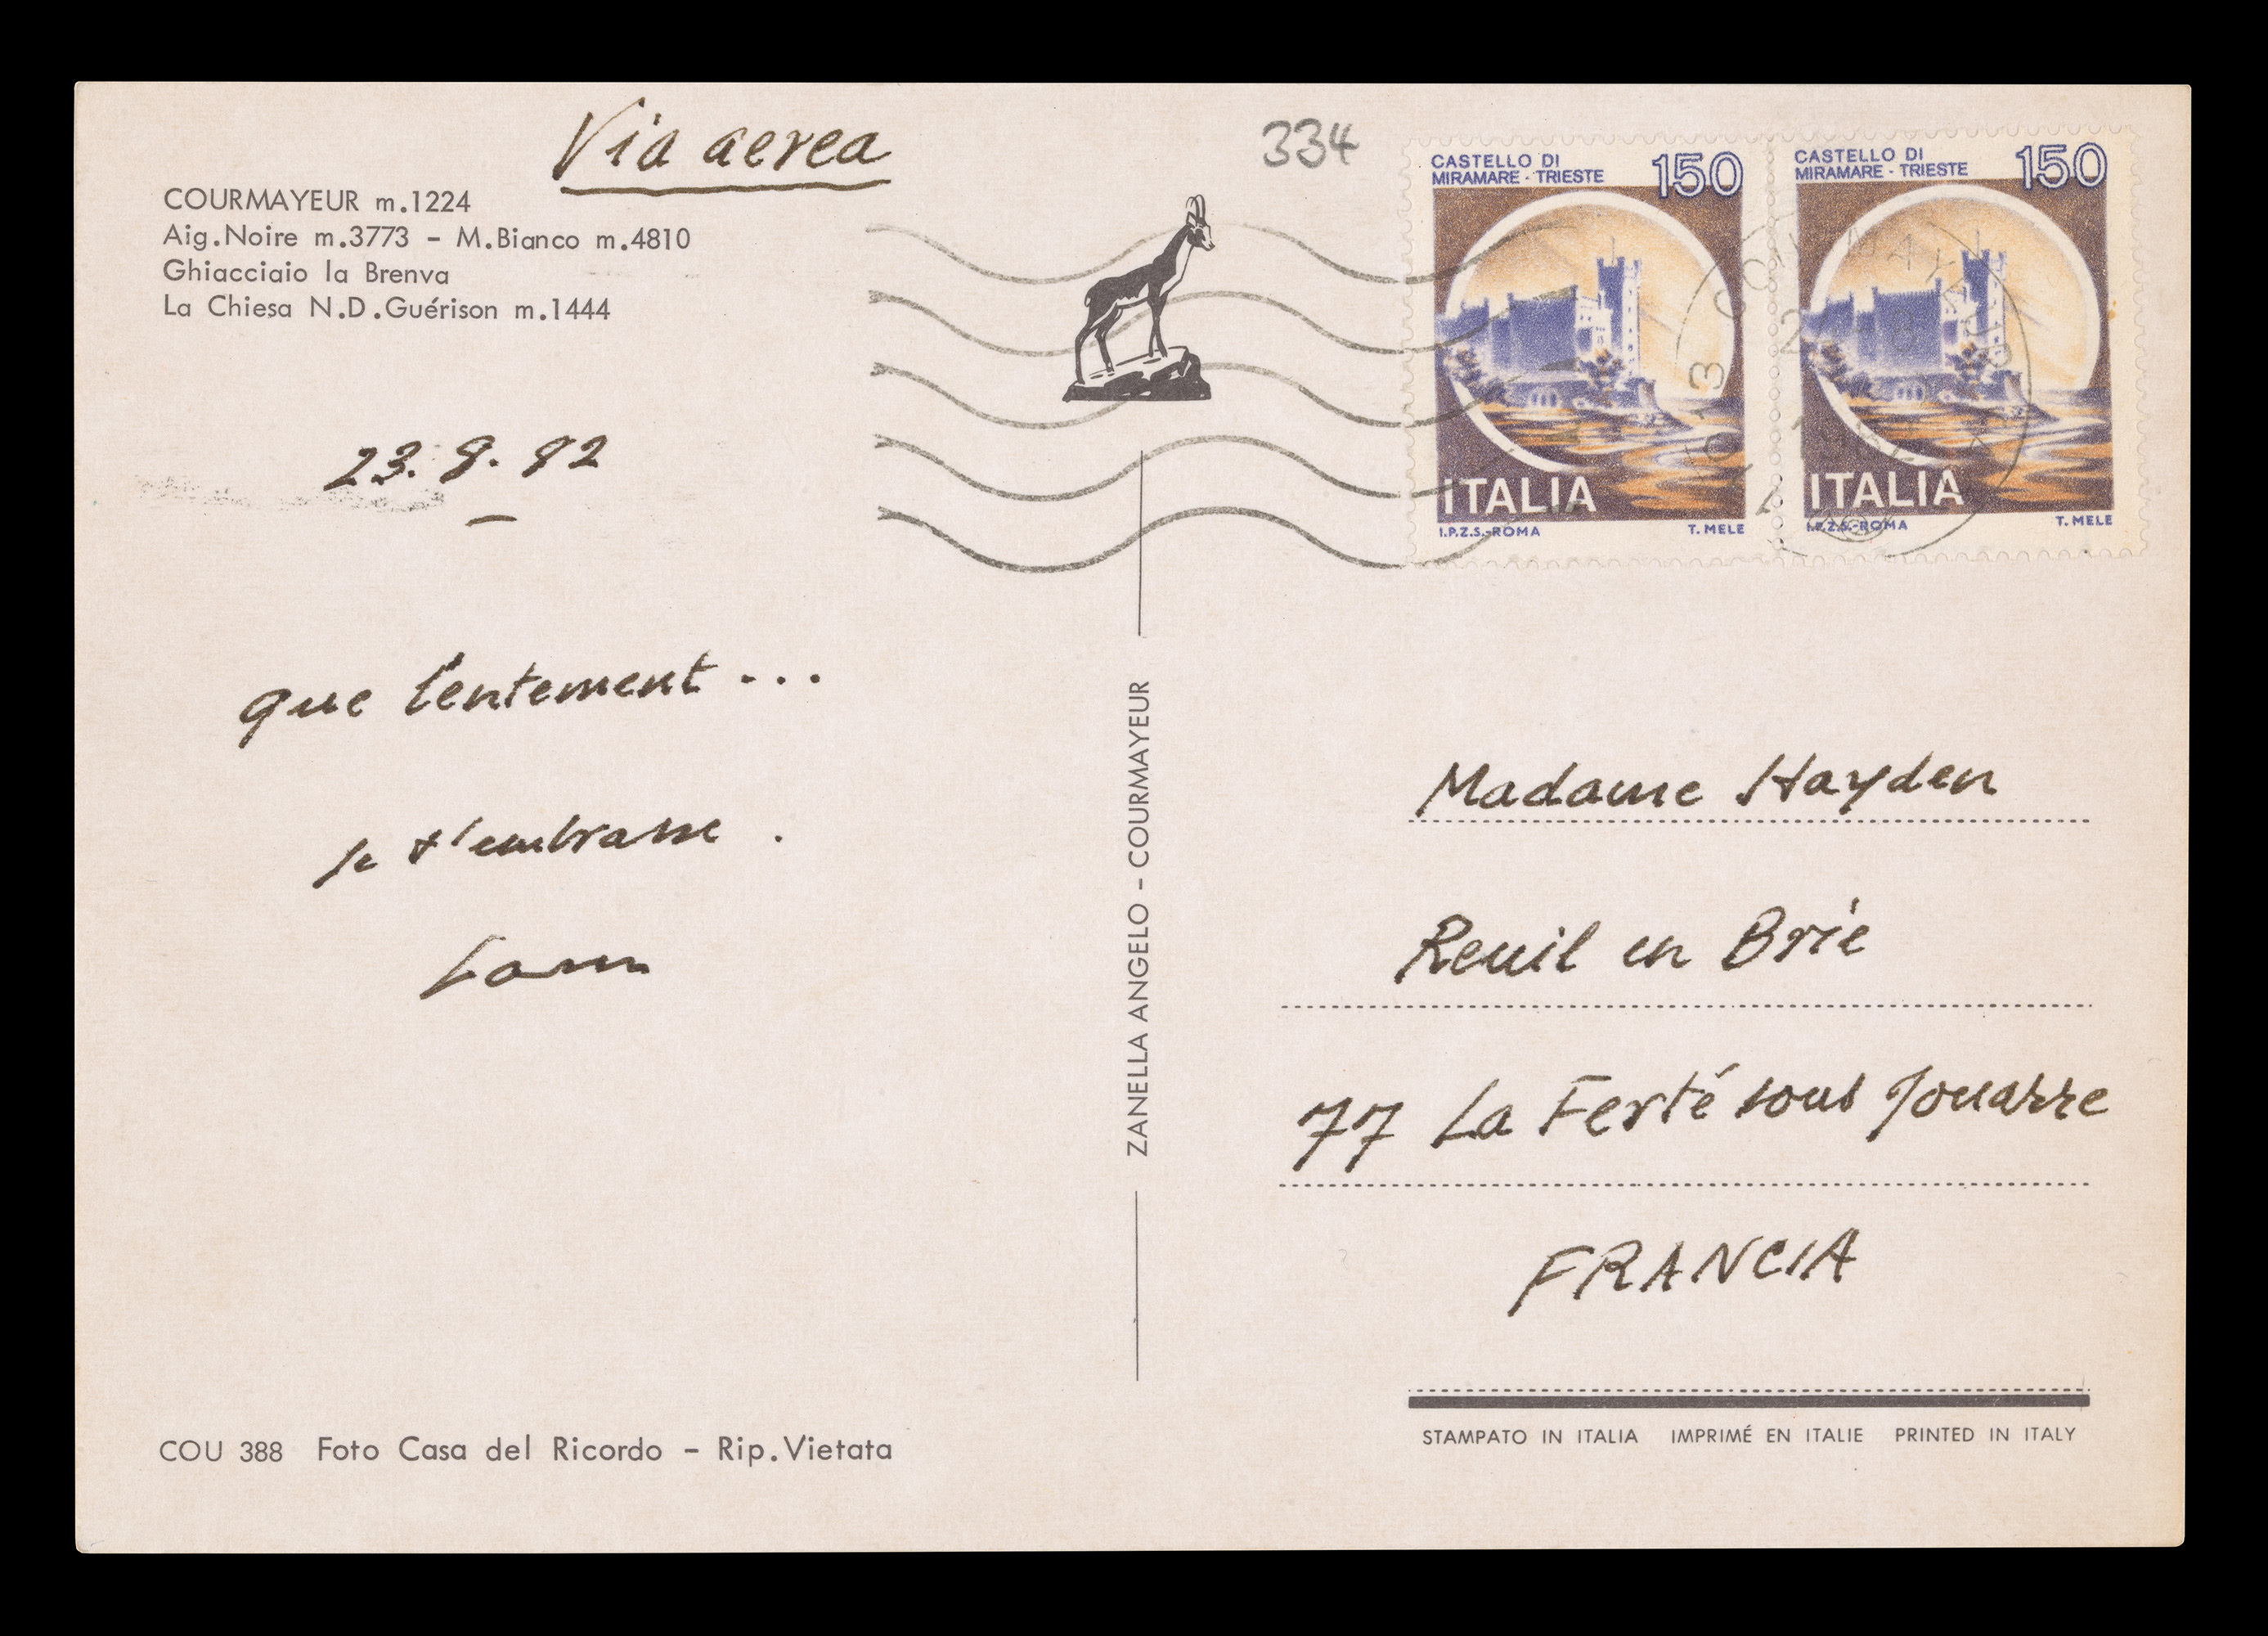 Via aerea
COURMAYEUR m.1224
Aig.Noire m.3773 – M.Bianco m.4810
Ghiacciaio la Brenva
La Chiesa N.D.Guérison m.1444
23. 8. 82
que lentement ...
je t'embrasse .
COU 388 Foto Casa del Ricordo – Rip.Vietata
ZANELLA ANGELO – COURMAYEUR
334
CASTELLO DI
MIRAMARE - TRIESTE
150
ITALIA
I.P.Z.S.-ROMA T. MELE
CASTELLO DI
MIRAMARE - TRIESTE
150
ITALIA
I.P.Z.S.-ROMA T. MELE
Madame Hayden
Reuil en Brie
77 La Ferté sous Jouarre
FRANCIA
STAMPATO IN ITALIA IMPRIMÉ EN ITALIE PRINTED IN ITALY